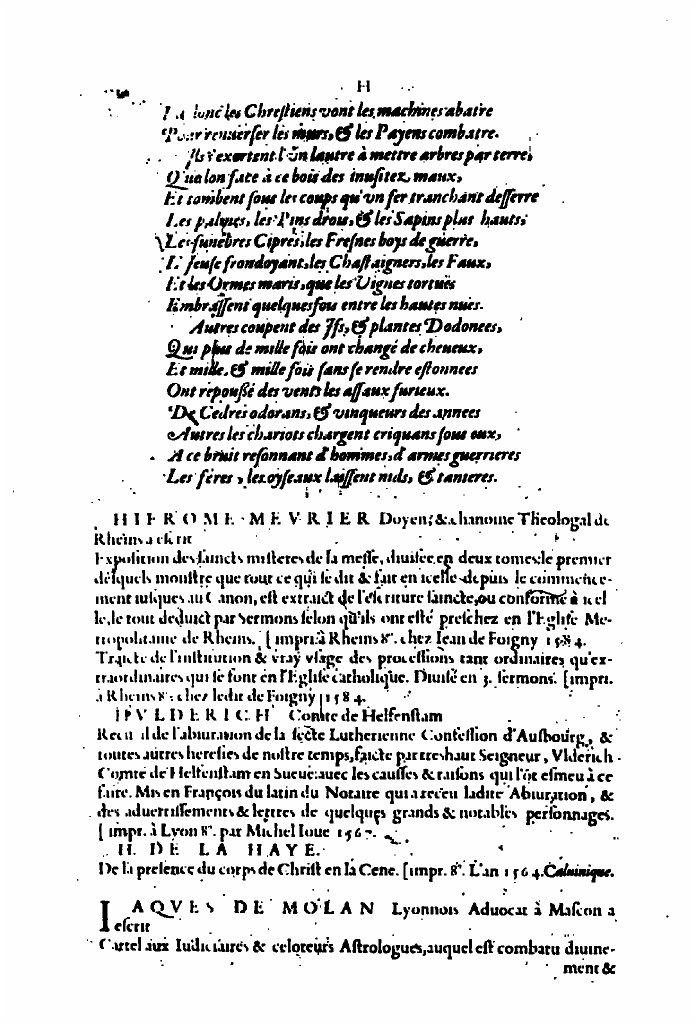 H
les Chrestiens vont les machines abatre
Pour renuerser les murs, & les Payens combatre.
Ils s'exortent l'un lautre à mettre arbres par terre,
Qu'a lon face à ce bois des inusitez maux,
Et tombent sous les coups qu'vn fer tranchant desserre
Les palmes, les Pins drois, & les Sapins plus hauts,
Les funebres Cipres, les Fresnes boys de guerre,
L'Ieuse frondoyant, les Chastaigners, les Faux,
Et les Ormes maris, que les Vignes tortues
Embrassent quelquesfois entre les hautes nues.
Autres coupent des Ifs, & plantes Dodonees,
Qui plus de mille fois ont changé de cheueux,
Et mille, & mille fois sans se rendre estonnees
Ont repoussé des vents les assaux furieux.
De Cedres odorans, & vinqueurs des annees
Autres les chariots chargent criquans sous eux,
A ce bruit resonnant d'hommes, d'armes guerrieres
Les feres, les oyseaux laissent nids, & tanieres.
HIEROME MEVRIER Doyen, & chanoine Theologal de
Rheins a escrit
Exposition des saincts misteres de la messe, diuisee en deux tomes: le premier
desquels monstre que tout ce qui se dit & fait en icelle depuis le commence-
ment iusques au Canon, est extraict de l'escriture saincte, ou conforme à icel
le, le tout deduict par Sermons selon qu'ils ont esté preschez en l'Eglise Me-
tropolitaine de Rheins. [impri. à Rheins 8°. chez Iean de Foigny 1584.
Traicte de l'institution & vray vsage des processions tant ordinaires qu'ex-
traordinaires qui se font en l'Eglise catholique. Diuisé en 3. sermons. [impri.
à Rheins 8°. chez ledit de Foigny 1584.
HVLDERICH Comte de Helfenstam
Recueil de l'abiuration de la secte Lutherienne Confession d'Ausbourg, &
toutes autres heresies de nostre temps, faicte par treshaut Seigneur, Vlderich
Comte de Helfenstam en Sueue: auec les causses & raisons qui l'ōt esmeu à ce
faire. Mis en François du latin du Notaire qui a receu ladite Abiuration, &
des aduertissements & lettres de quelques grands & notables personnages.
[impr. à Lyon 8°. par Michel Ioue 1567.
H. DE LA HAYE.
De la presence du corps de Christ en la Cene. [impr. 8°. L'an 1564. Caluinique.
IAQVES DE MOLAN Lyonnois Aduocat à Mascon a
escrit
Cartel aux Iudiciaires & celoteurs Astrologues, auquel est combatu diuine-
ment &